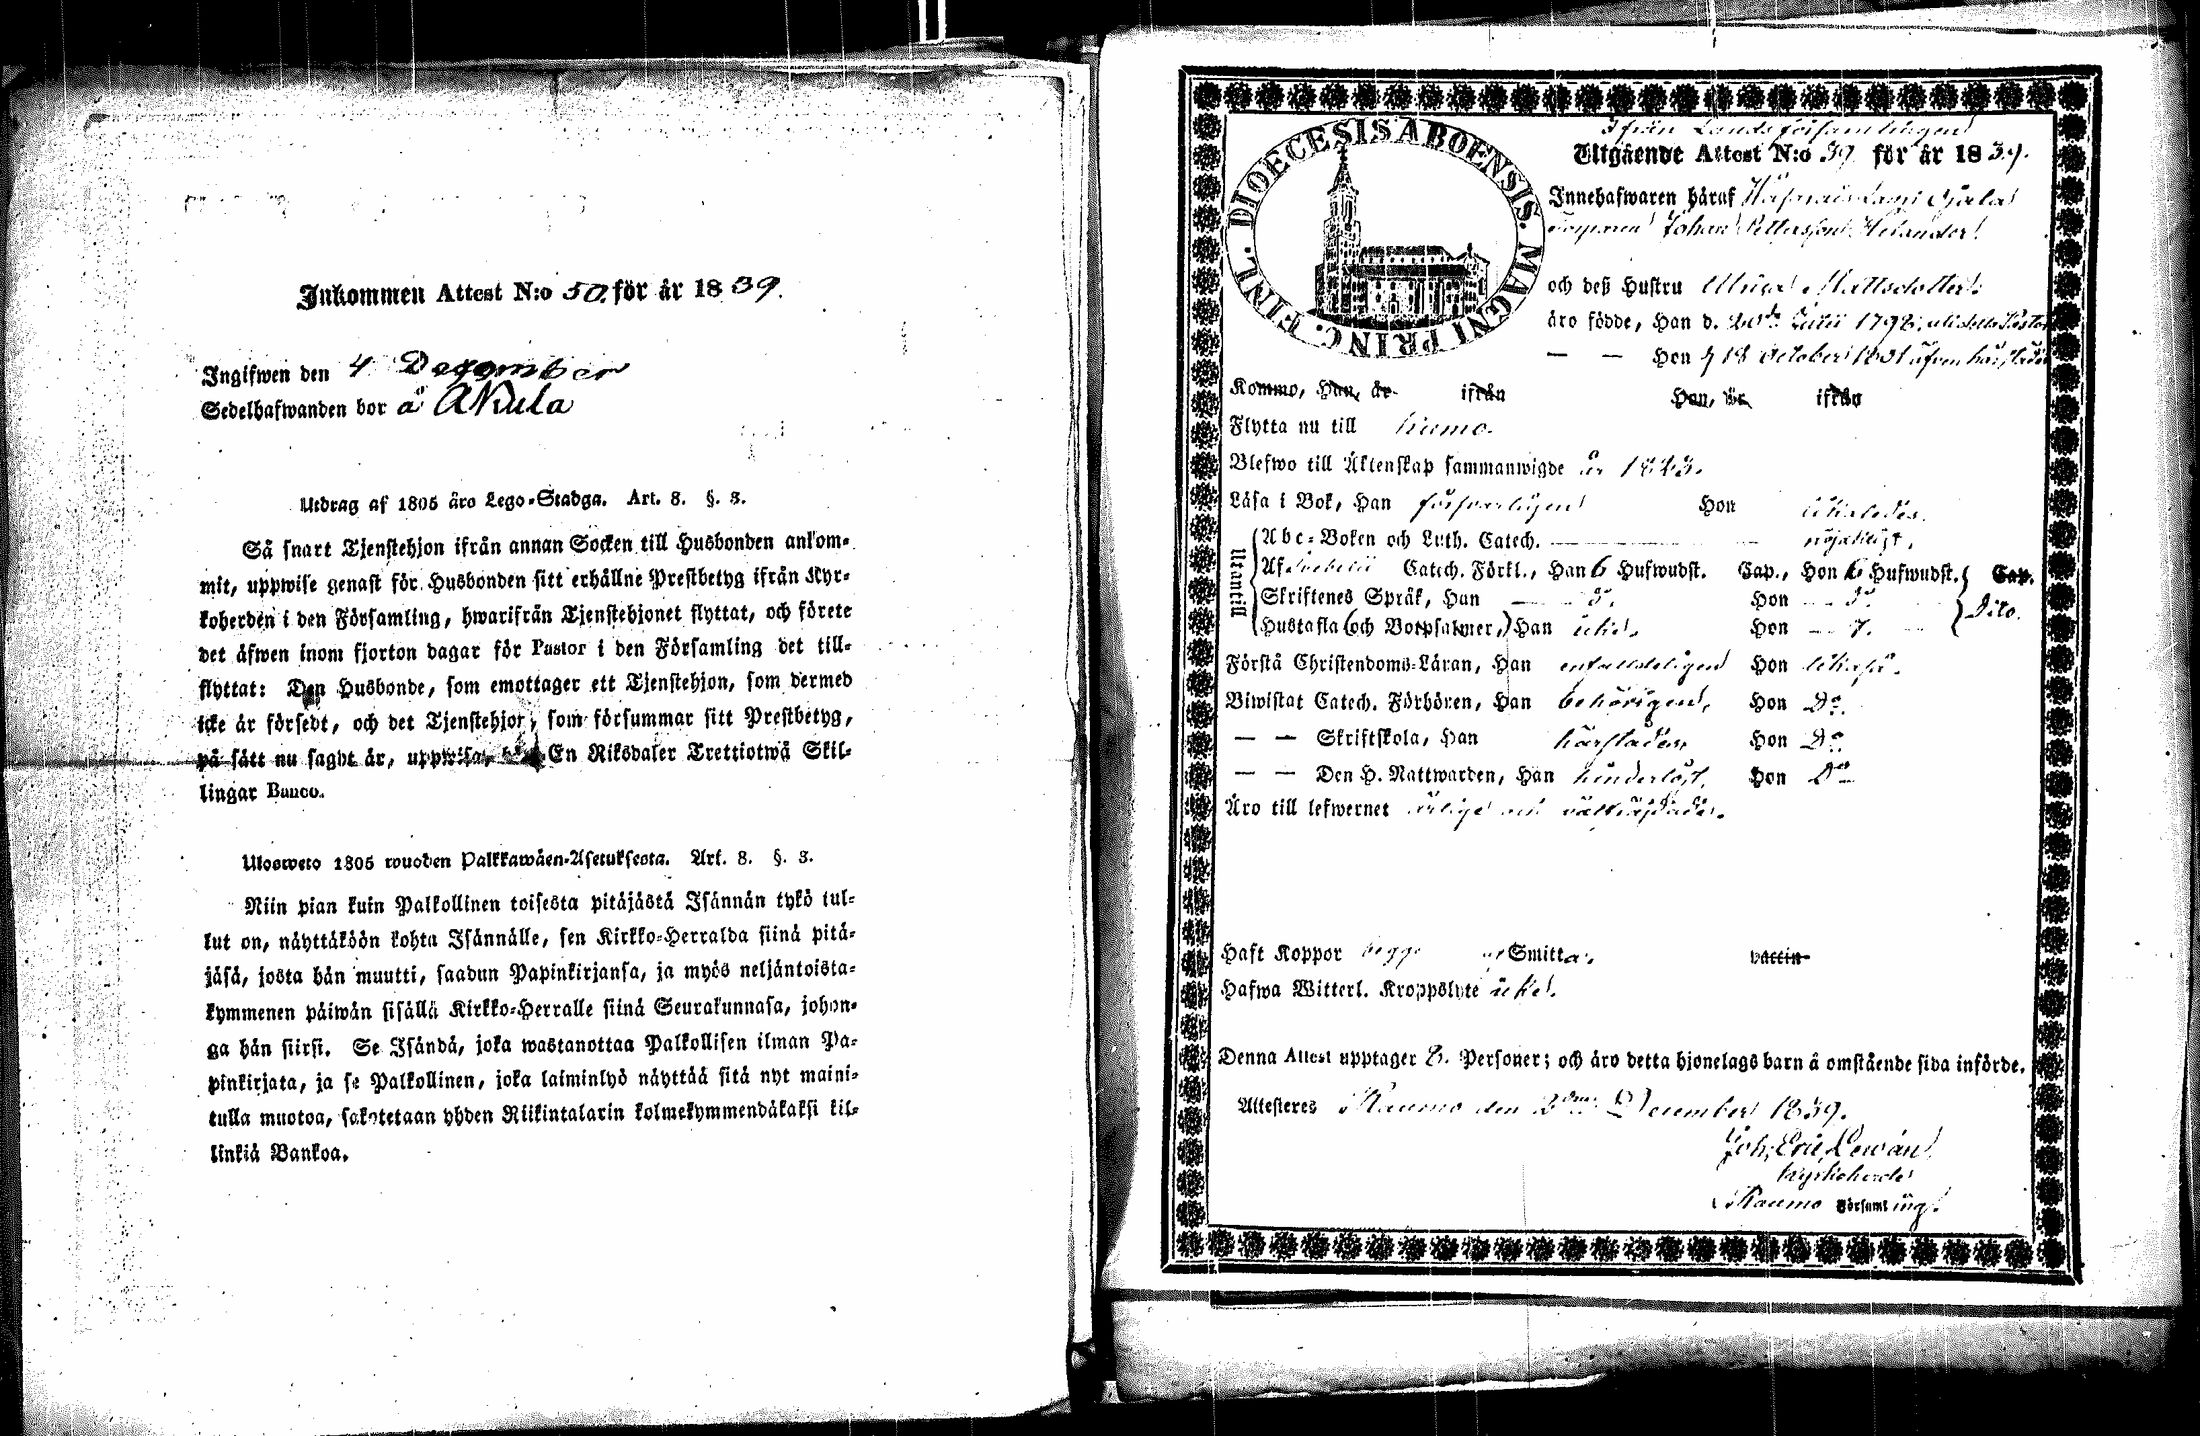 Inkommen Attest N:o 50 för år 1839.
Ingifwen den 4 Dezember
Sedelhafwanden bor å Akula
Utdrag af 1805 åro Lego-Stadga. Art. 8. §. 3.
Så snart Tjenstehjon ifrån annan Socken till Husbonden ankom-
mit, uppwise genast för Husbonden sitt erhållne Prestbetyg ifrån Kyr-
koherden i den Församling, hwarifrån Tjenstehjonet flyttat, och förete
det äfwen inom fjorton dagar för Pastor i den Församling det till-
flyttat: Den Husbonde, som emottager ett Tjenstehjon, som dermed
icke är försedt, och det Tjenstehjon, som försummar sitt Prestbetyg,
på sätt nu sagdt är, uppwisa, En Riksdaler Trettiotwå Skil-
lingar Banco.
Ulosweto 1805 wuoden Palkkawäen-Asetuksesta. Art. 8. §. 3.
Niin pian kuin Palkollinen toisesta pitäjästä Isännän tykö tul-
lut on, näyttäköön kohta Isännälle, sen Kirkko-Herralda siinä pitä-
jäsä, josta hän muutti, saadun Papinkirjansa, ja myös neljäntoista-
kymmenen päiwän sisällä Kirkko-Herralle siinä Seurakunnasa, johon-
ga hän siirsi. Se Isändä, joka wastanottaa Palkollisen ilman Pa-
pinkirjata, ja se Palkollinen, joka laiminlyö näyttää sitä nyt maini-
tulla muotoa, sakotetaan yhden Riikintalarin kolmekymmendäkaksi kil-
linkiä Bankoa.
DIOECESIS ABOENSIS. MAGNI PRINC. FINL.
Ifrån Landsförsamlingen
Utgående Attest N:o 39 för år 1839.
Innehafwaren häraf
Johan Pettersson Helander
och deß Hustru Mattsdotter.
äro födde, Han d. 20de Julii 1798,
— — Hon d 18 October 1801 äfven härstädes
Kommo, Han, är ifrån Hon, är ifrån
Flytta nu till Kumo.
Blefwo till Äktenskap sammanwigde år 1823.
Läsa i Bok, Han försvarligen Hon likaledes.
Utantill
Abc-Boken och Luth. Catech. nöjaktigt,
Af Svebelii Catech. Förkl., Han 6 Hufwudst. Cap., Hon 6 Hufwudst. Cap.
Skriftenes Språk, Han — Hon —
Dito.
Hustafla (och Botpsalmer,) Han Hon
Förstå Christendoms-Läran, Han enfaldeligen Hon likaså.
Biwistat Catech. Förhören, Han behörigen, Hon Do.
— — Skriftskola, Han härstädes, Hon Do
— — Den H. Nattwarden, Han hinderlöst, Hon Do
Äro till lefwernet ärlige och välfrejdade.
Haft Koppor begge Smitta, vaccin
Hafwa Witterl. Kroppslyte
Denna Attest upptager Personer; och äro detta hjonelags barn å omstående sida införde.
Attesteres Raumo den December 1839.
Joh: Eric Lewán
Kyrkoherde
Raumo Församling.